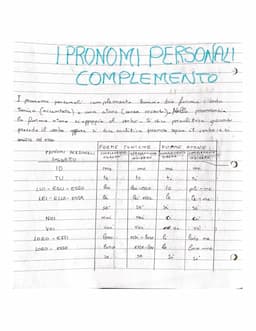 I PRONOMI PERSONALI
COMPLEMENTO
I pronomi personali complemento hanno due forme: una
tonica (accentata), e una atona (senza accento). Nella pronuncia
la forma atona si appoggia al verbo
precede il verbo oppure si dice enclitica quando segue il verbo e si
unisce ad esso
FORME TONICHE FORME ATONE
PRONOMI PERSONALI
SOGGETTO
IO me me mi mi
TU te te ti ti
LUI - EGLI - ESSO lui lui-esso lo gli-ne
LEI - ELLA - ESSA lei lei-essa la le-ne
sé sé si si
NOI noi noi ci ci
VOI voi voi vi vi
LORO - ESSI loro li loro-ne
LORO - ESSE loro le loro-ne
sé sé si si